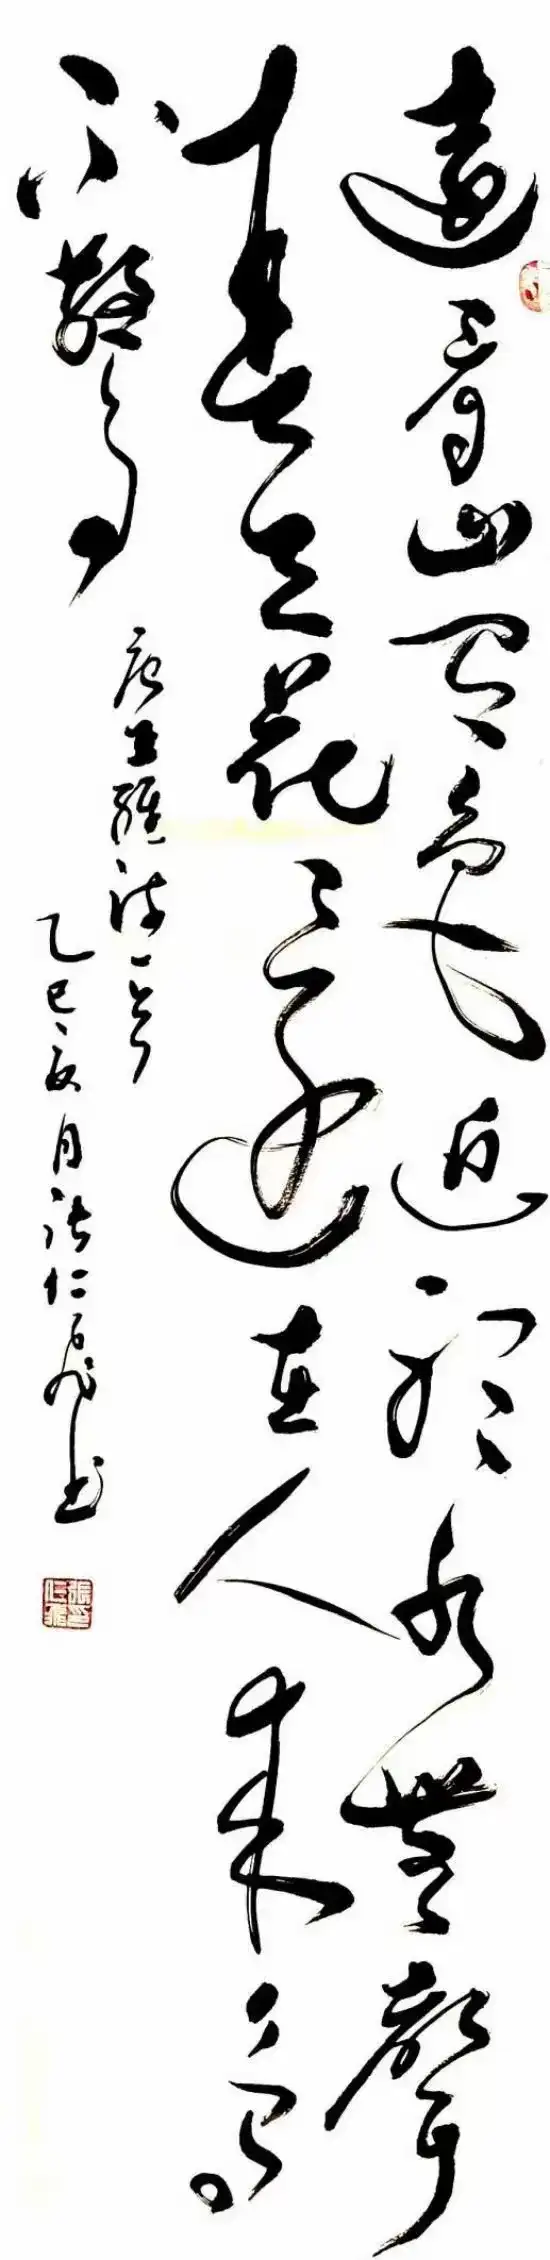 遠看山有色近聽水無聲
春去花還在人來鳥
不驚
唐王維詩一首
乙巳亥月張仁飛书
張仁飛印